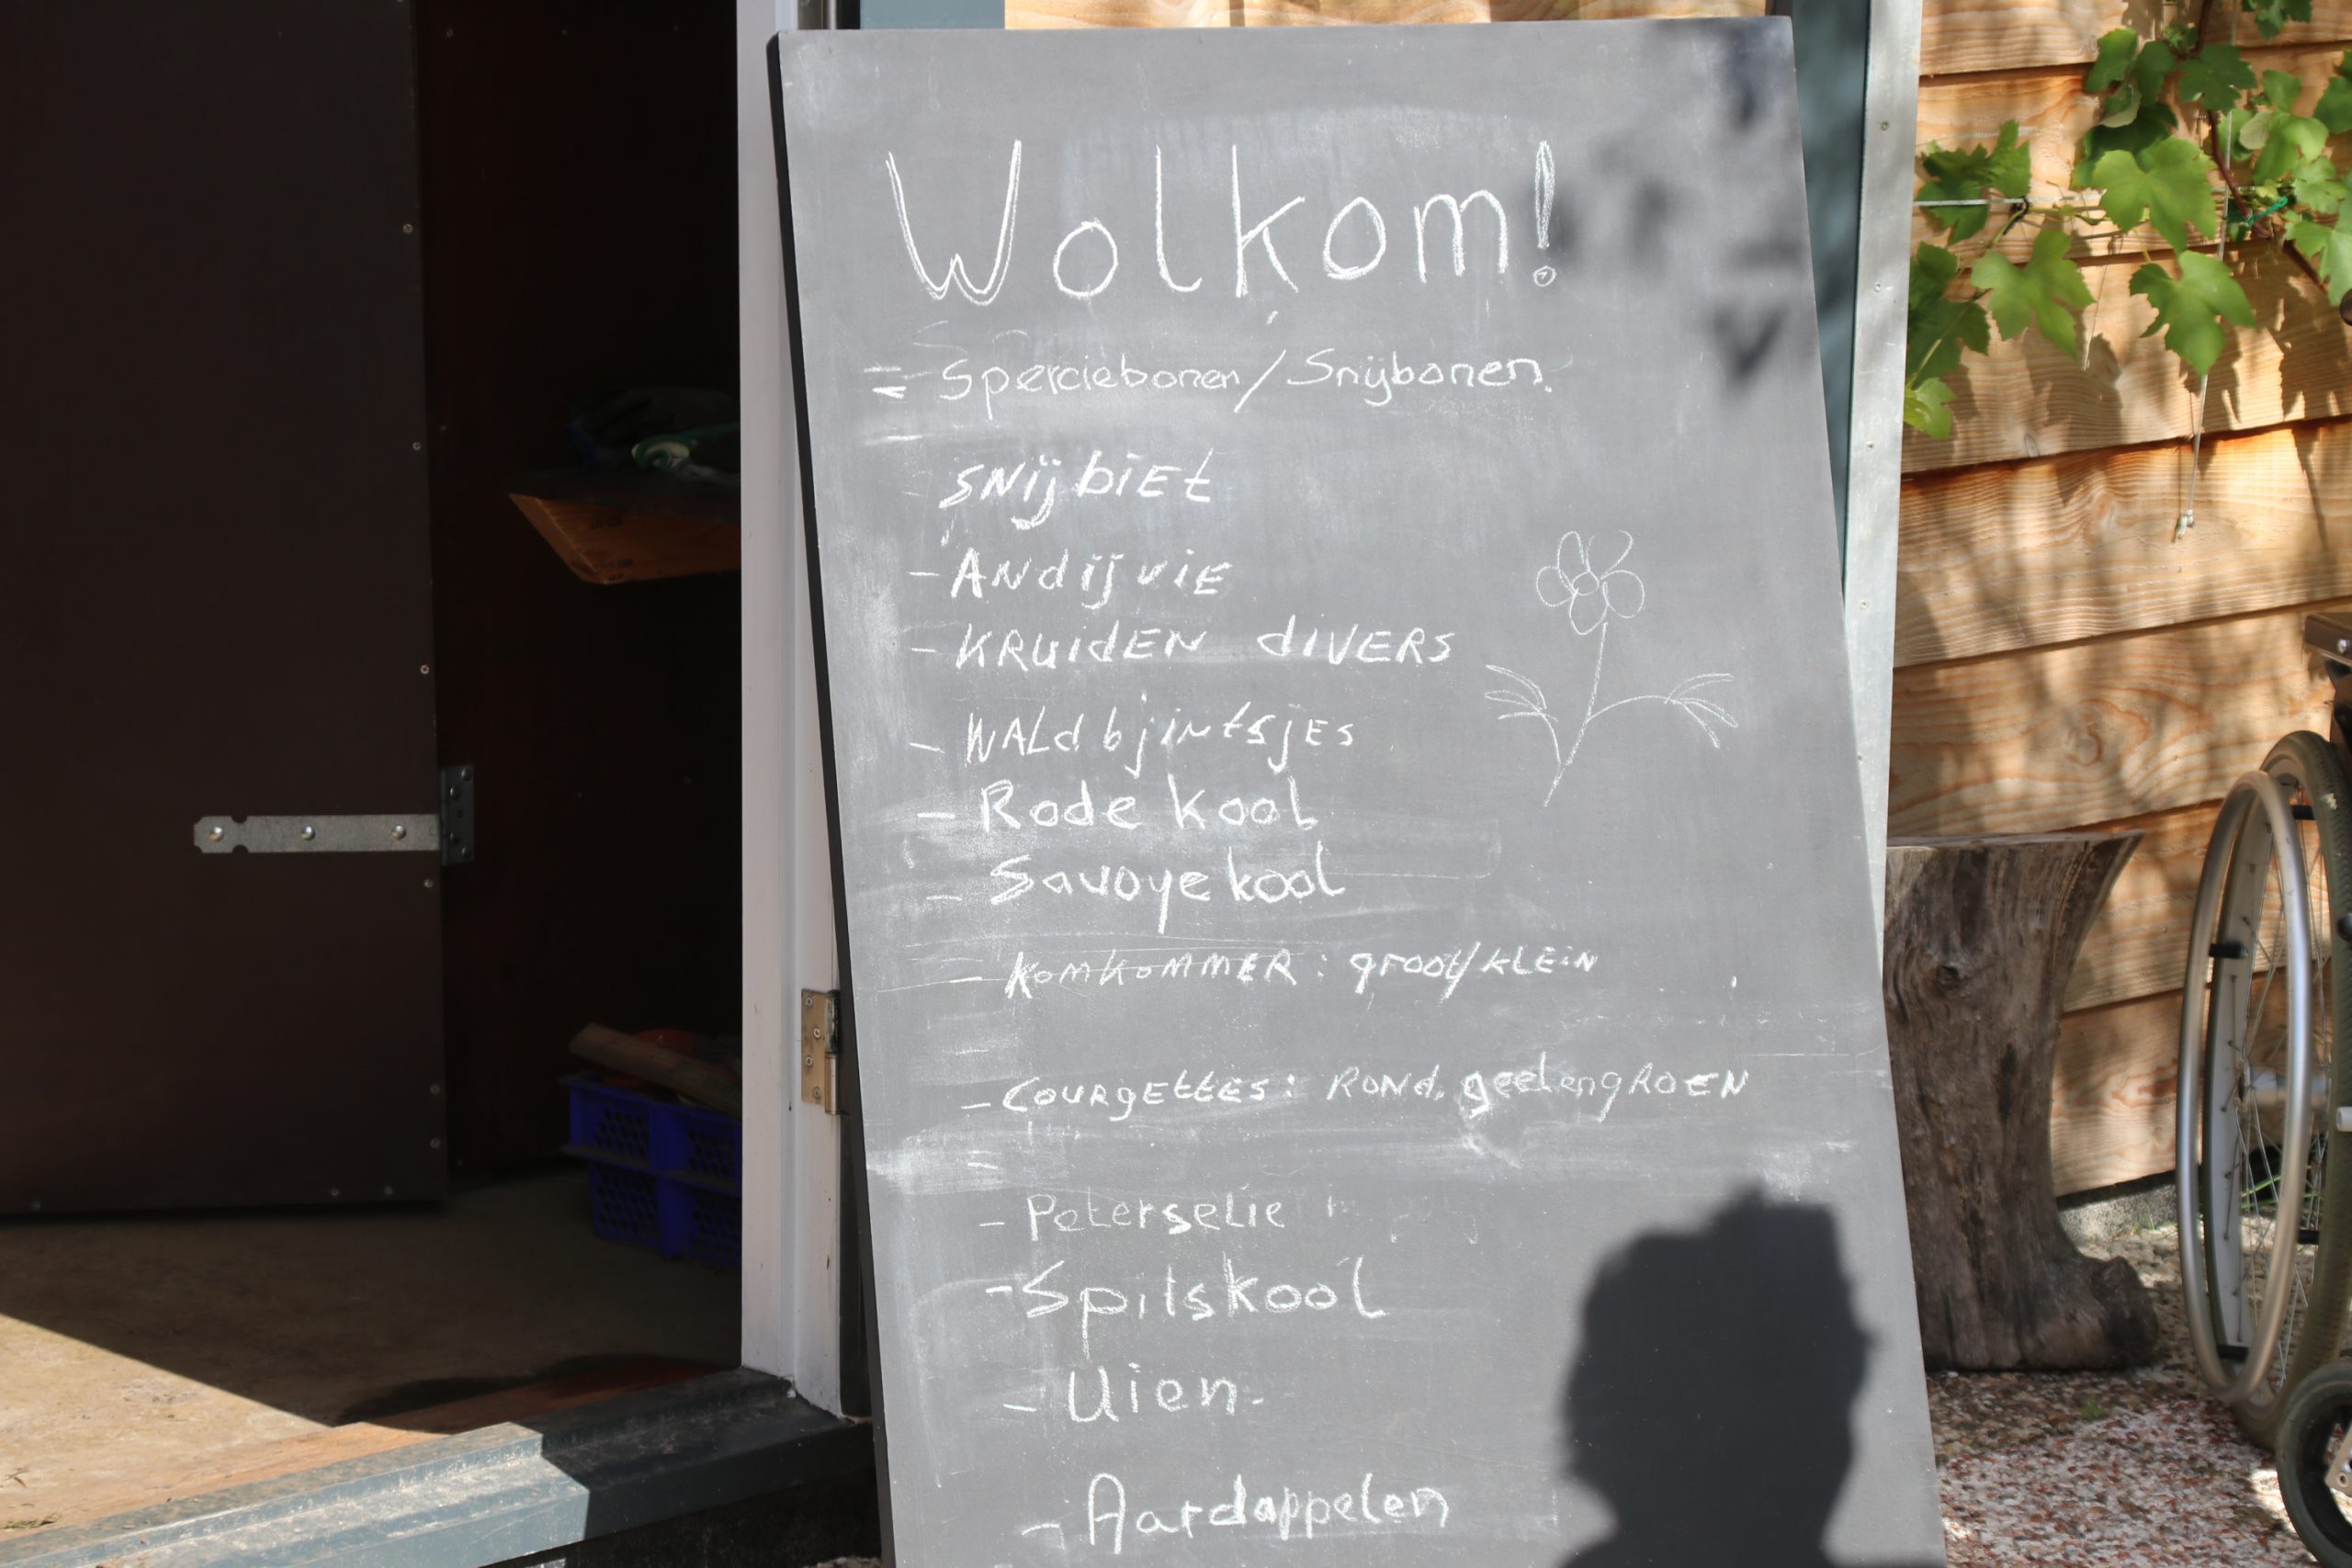 Wolkom!
= Sperciebonen / Snijbonen.
- SNijbiEt
- ANdijviE
- KRuidEN diVERS
- WALdbjintsjES
- Rode kool
- Savoye kool
- KomKommER: groot/KLEiN
- COURgEttES: RONd, geel en gROEN
- PeterseLie
- Spitskool
- Uien.
- Aardappelen